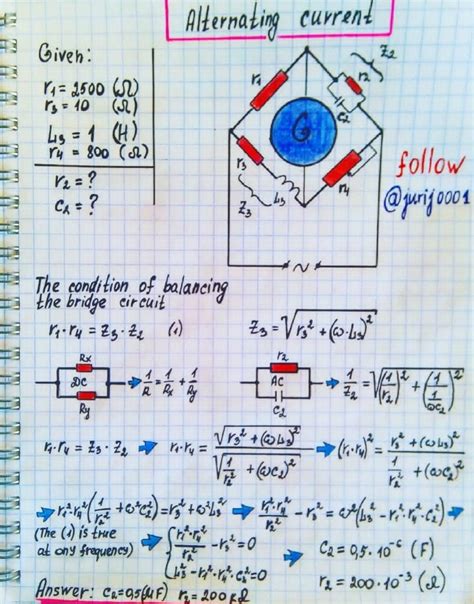 Alternating current
Given:
r₁ = 2500 (Ω)
r₃ = 10 (Ω)
L₃ = 1 (H)
r₄ = 800 (Ω)
r₂ = ?
C₂ = ?
Z₂
r₁
r₂
C₂
G
r₃
L₃
r₄
Z₃
~
follow
@jurij0001
The condition of balancing
the bridge circuit
r₁·r₄ = Z₃·Z₂ (1)
Z₃ = √(r₃² + (ω·L₃)²)
Rx
DC
Ry
1/R = 1/Rx + 1/Ry
r₂
AC
C₂
1/Z₂ = √((1/r₂)² + (1/(1/ωC₂))²)
r₁·r₄ = Z₃·Z₂ ➡ r₁·r₄ = √(r₃² + (ωL₃)²) / √(1/r₂² + (ωC₂)²) ➡ (r₁·r₄)² = (r₃² + (ωL₃)²) / (1/r₂² + (ωC₂)²)
➡ r₁²·r₄²(1/r₂² + ω²C₂²) = r₃² + ω²L₃² ➡ r₁²·r₄²/r₂² − r₃² = ω²(L₃² − r₁²·r₄²·C₂²) ➡
(The (1) is true
at any frequency) ➡ { r₁²·r₄²/r₂² − r₃² = 0
L₃² − r₁²·r₄²·C₂² = 0
➡ C₂ = 0,5·10⁻⁶ (F)
r₂ = 200·10⁻³ (Ω)
Answer: C₂ = 0,5 (μF) r₂ = 200 kΩ